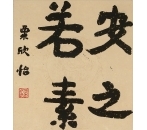 安之
若素
栗欣怡